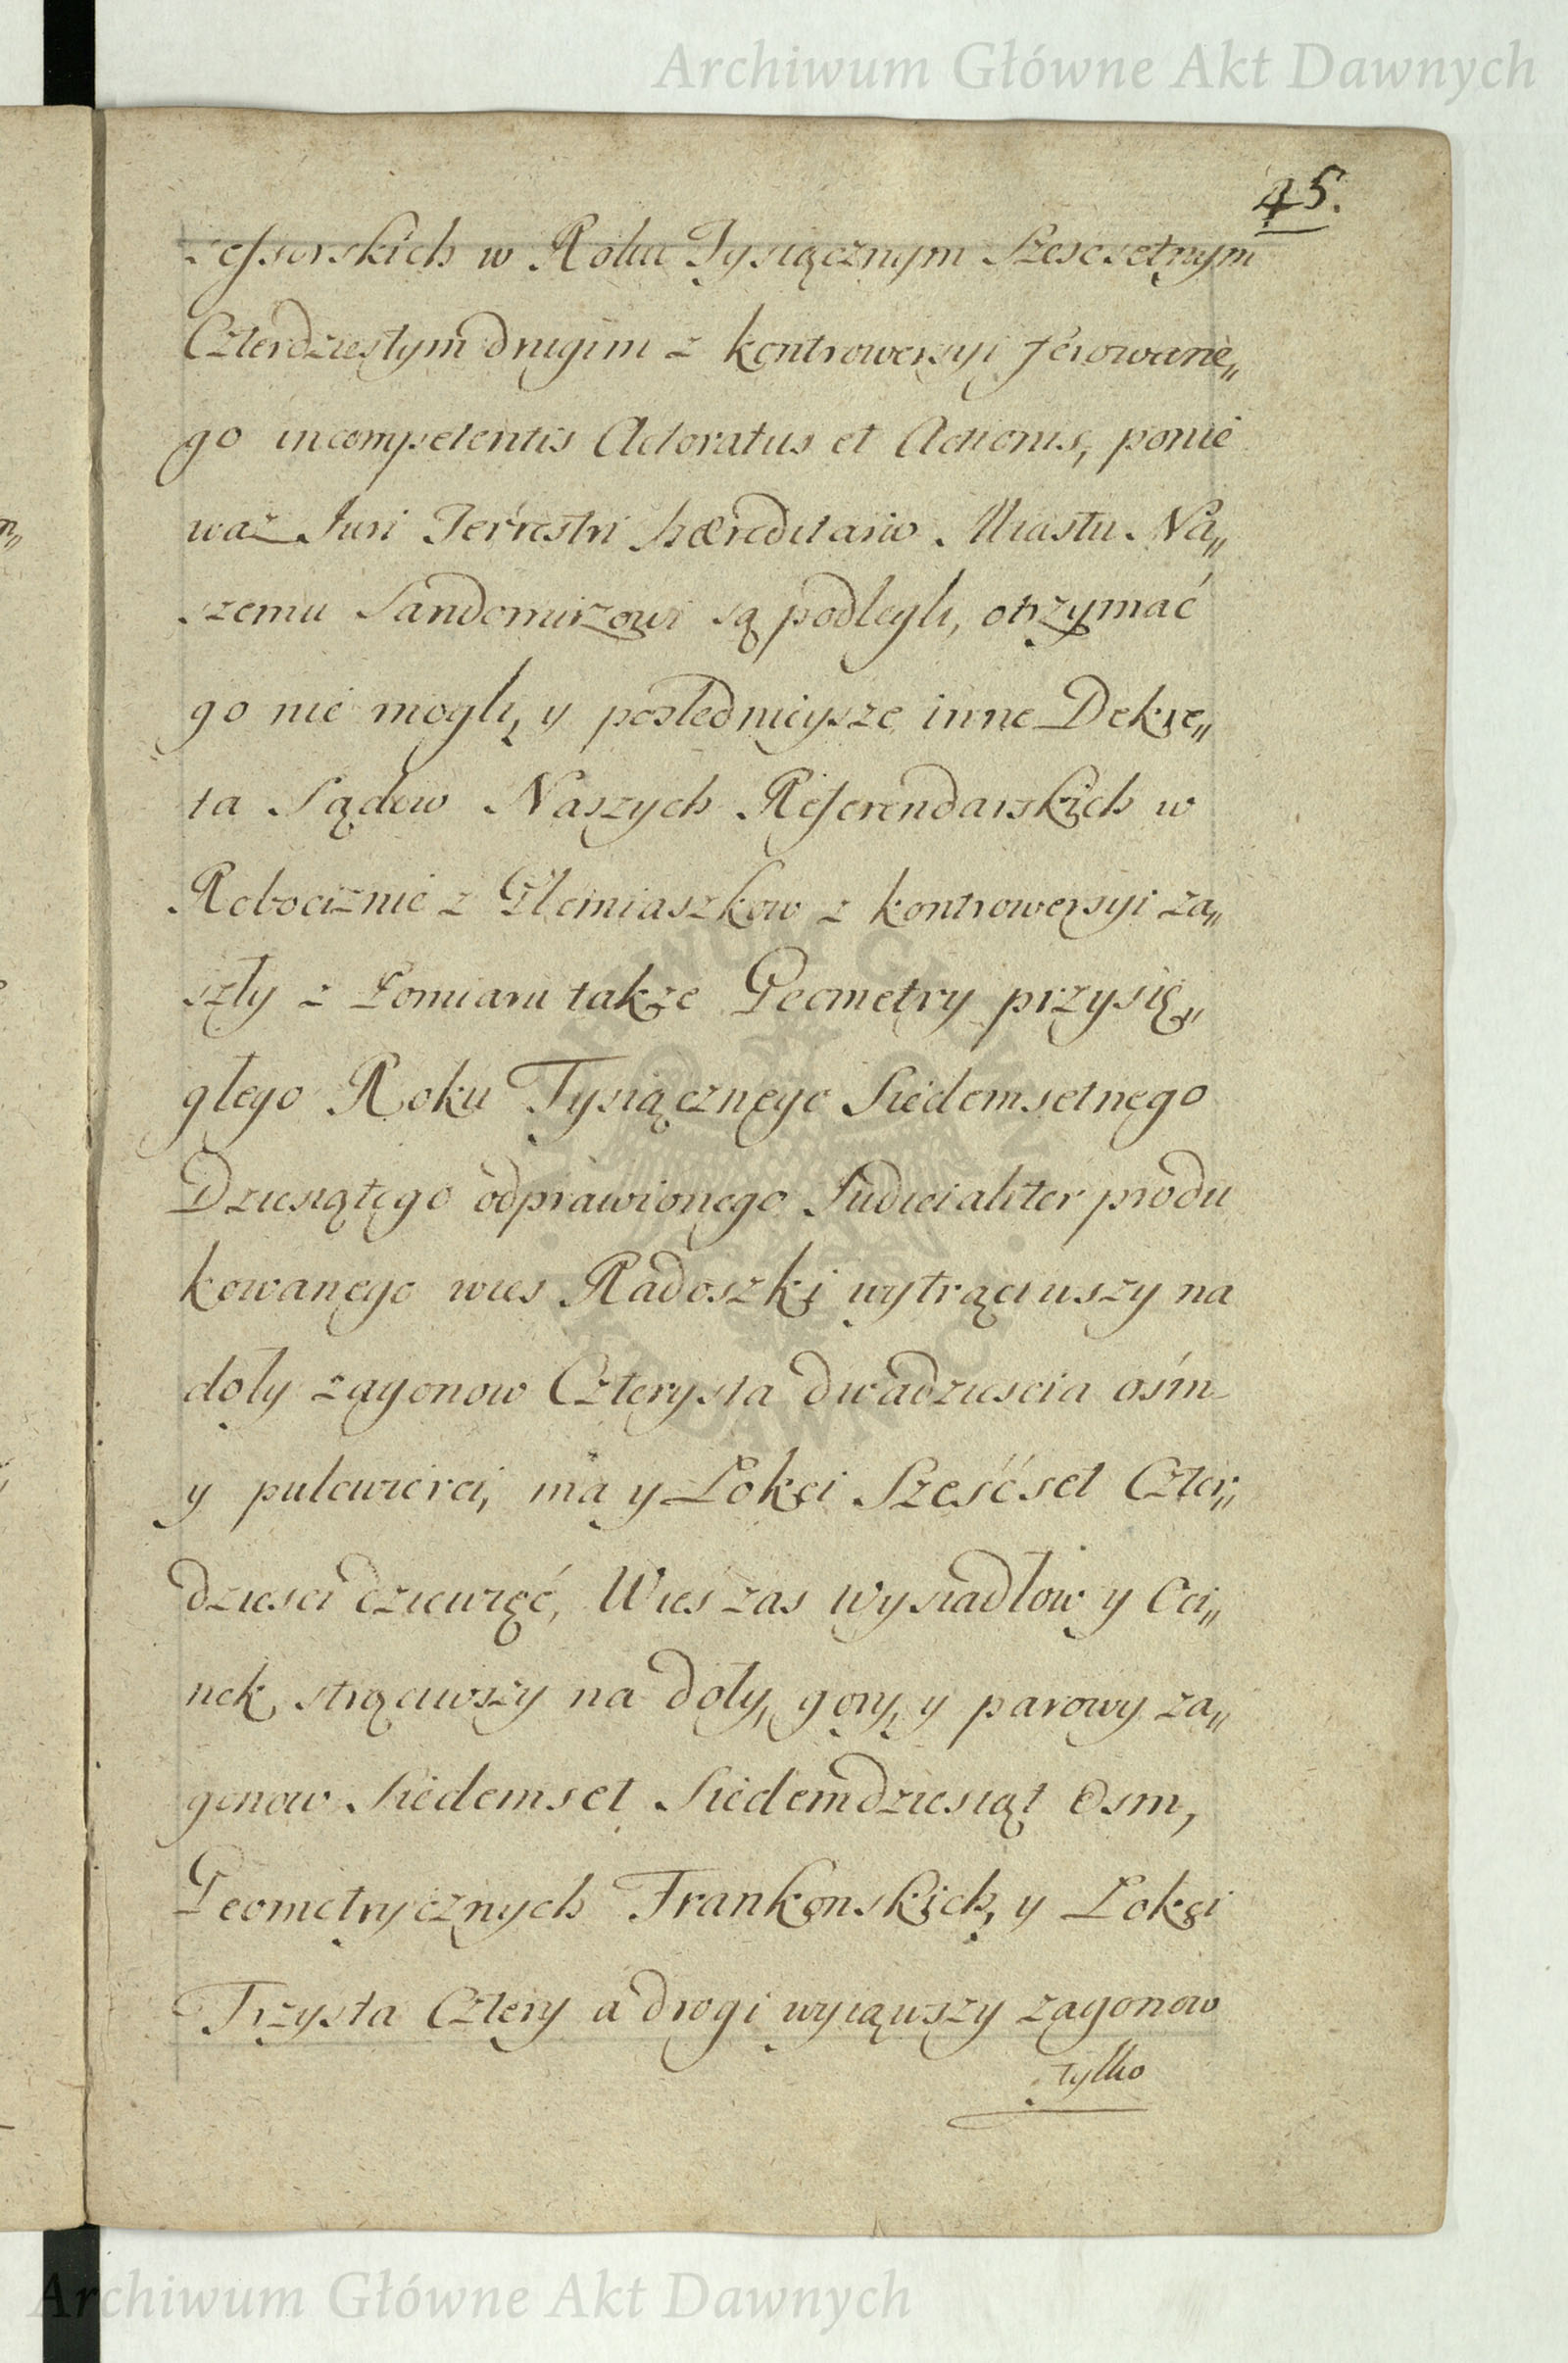 Archiwum Główne Akt Dawnych
45.
sessorskich w Roku Tysiącznym Szescsetnym
Czterdziestym drugim z kontrowersyi ferowane„
go incompetentis Actoratus et Actionis, ponie
waż Juri Terrestri hæreditario Miastu Na„
szemu Sandomirzowi są podlegli, otrzymać
go nie mogli, y posledniejsze inne Dekre„
ta Sądow Naszych Referendarskich w
Robociznie z Gliemiaszkow z kontrowersyi za„
szły z Pomiaru także Geometry przysię„
głego Roku Tysiącznego Siedemsetnego
Dziesiątego odprawionego Judicialiter produ
kowanego wies Radoszki wytrąciwszy na
doły zagonow Czterysta dwadziescia ośm
y pułcwierci, ma y Łokci Sześćset Czter„
dziesci dziewięć, Wies zas Wysiadłow y Oci„
nek, strąciwszy na doły, gory, y parowy za„
gonow Siedemset Siedemdziesiąt Osm,
Geometrycznych Frankonskich, y Łokci
Trzysta Cztery a drogi wyiąwszy zagonow
tylko
Archiwum Główne Akt Dawnych